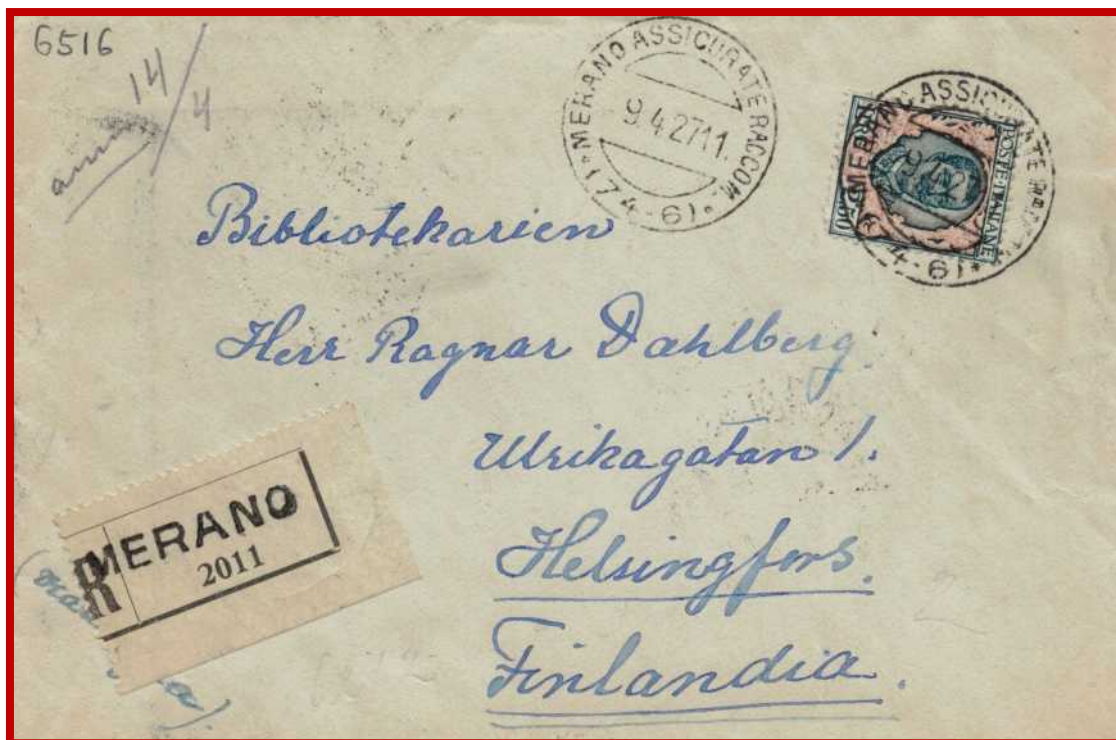 6516
14/4
MERANO ASSICURATE RACCOM.
9.4.27 11.
(174-61)
MERANO ASSICURATE
9.4.2
4-61)
POSTE ITALIANE
Bibliotekarien
Herr Ragnar Dahlberg.
Ulrikagatan 1.
Helsingfors.
Finlandia.
R
MERANO
2011